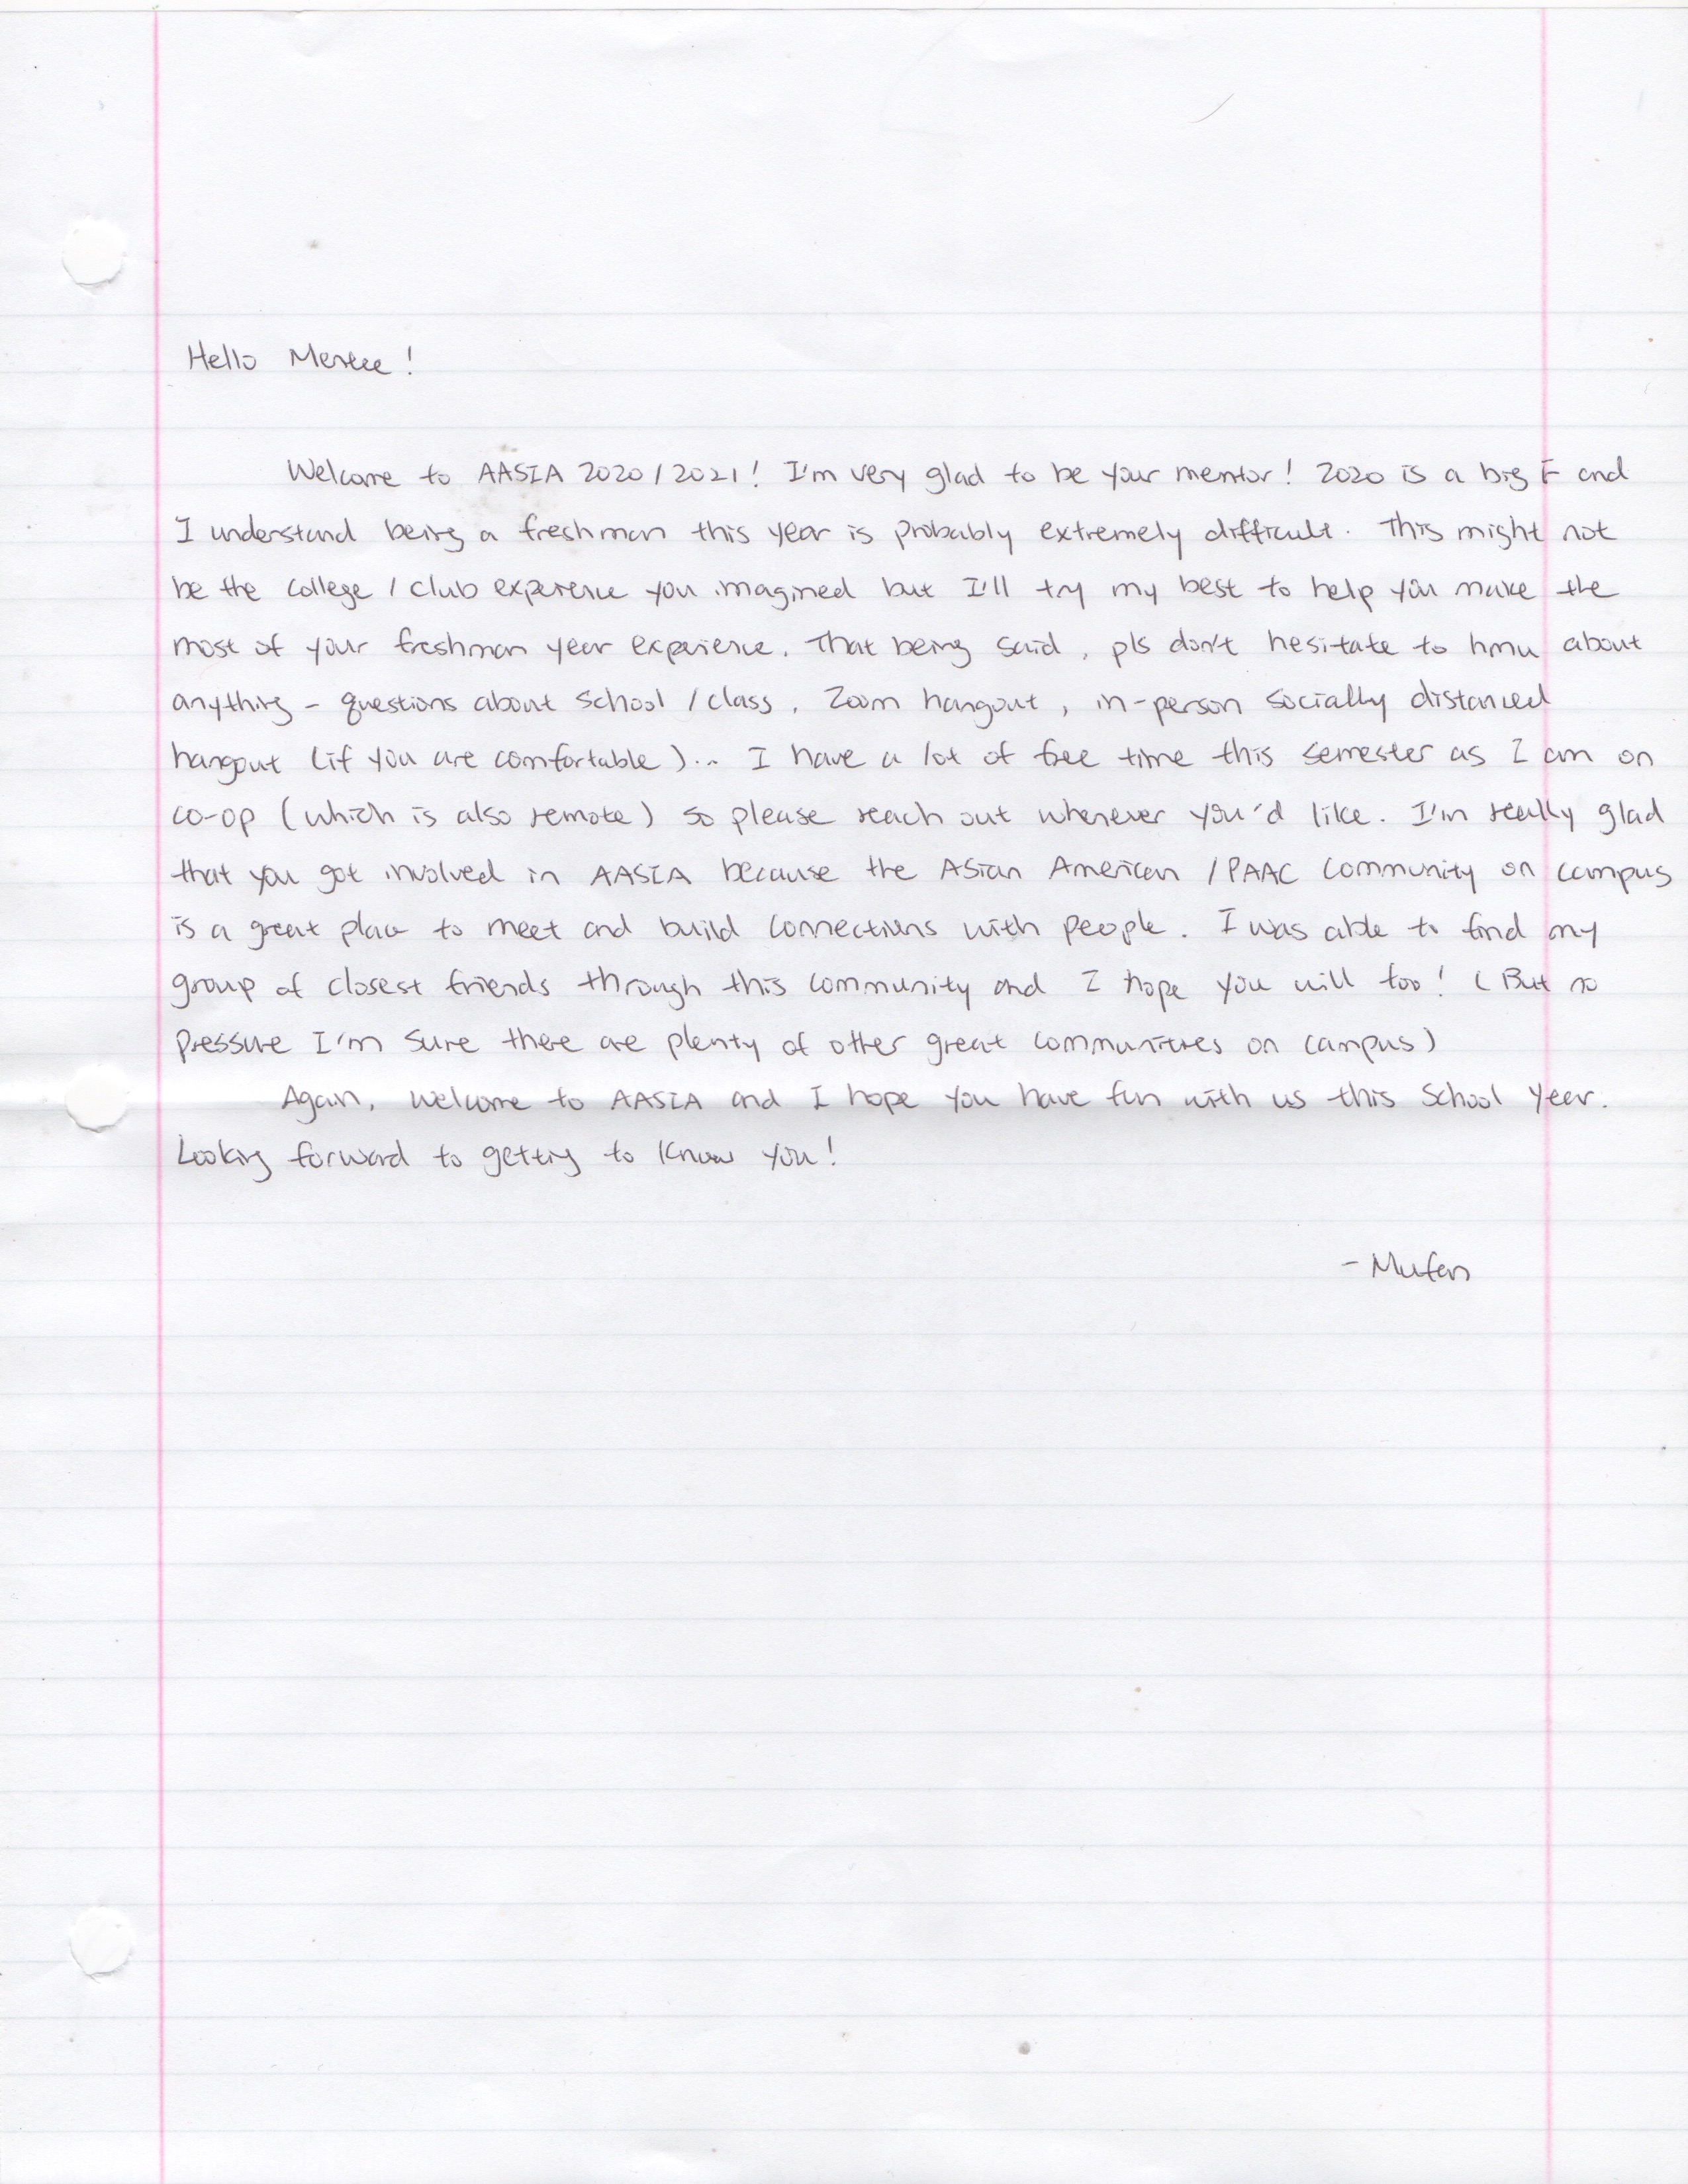 Hello Mentee!
Welcome to AASIA 2020/2021! I'm very glad to be your mentor! 2020 is a big F and
I understand being a freshman this year is probably extremely difficult. This might not
be the college / club experience you imagined but I'll try my best to help you make the
most of your freshman year experience. That being said, pls don't hesitate to hmu about
anything - questions about school / class, Zoom hangout, in-person socially distanced
hangout (if you are comfortable)... I have a lot of free time this semester as I am on
co-op (which is also remote) so please reach out whenever you'd like. I'm really glad
that you got involved in AASIA because the Asian American / PAAC community on campus
is a great place to meet and build connections with people. I was able to find my
group of closest friends through this community and I hope you will too! (But no
pressure I'm sure there are plenty of other great communities on campus)
Again, welcome to AASIA and I hope you have fun with us this school year.
Looking forward to getting to know you!
- Mufan